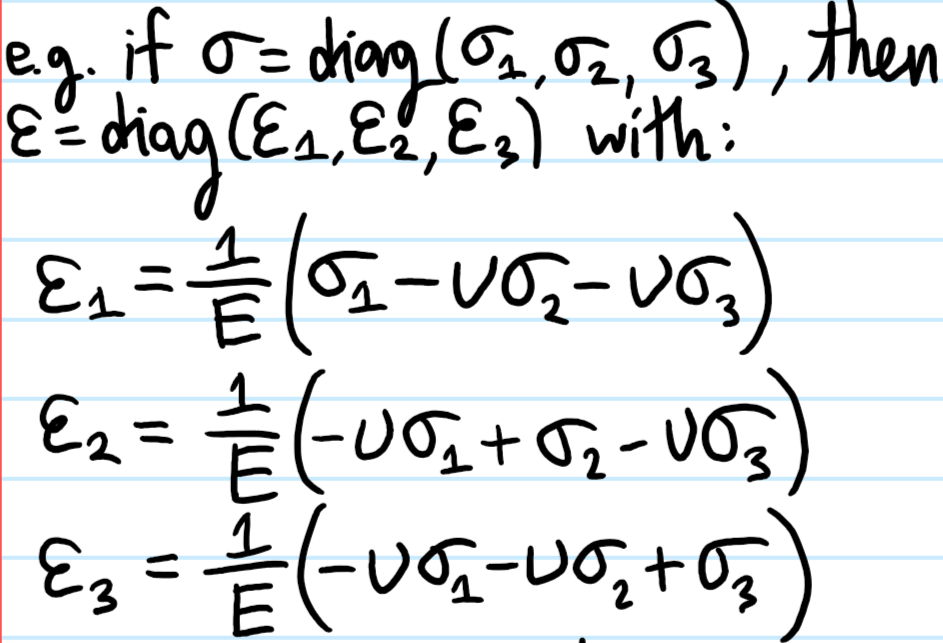 e.g. if σ = diag(σ₁, σ₂, σ₃), then
ε = diag(ε₁, ε₂, ε₃) with:
ε₁ = 1/E (σ₁ - νσ₂ - νσ₃)
ε₂ = 1/E (-νσ₁ + σ₂ - νσ₃)
ε₃ = 1/E (-νσ₁ - νσ₂ + σ₃)